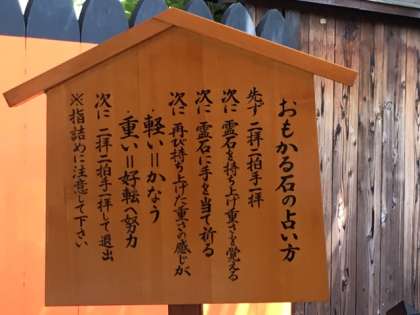 おもかる石の占い方
先ず 二拝二拍手一拝
次に 霊石を持ち上げ重さを覚える
次に 霊石に手を当て祈る
次に 再び持ち上げた重さの感じが、
・軽い=かなう
・重い=好転へ努力
次に 二拝二拍手一拝して退出
※指詰めに注意して下さい